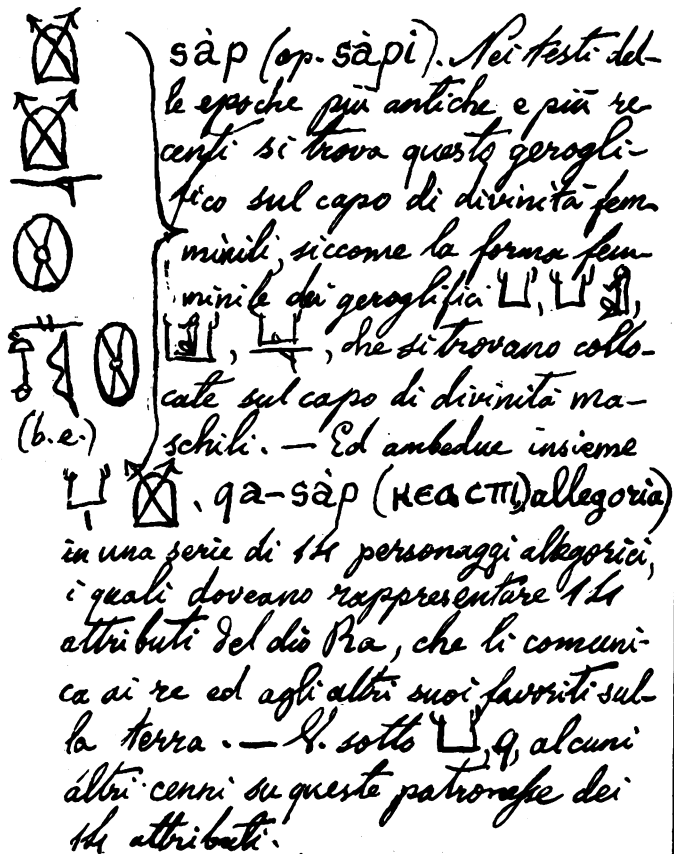 sàp (op. sàpi). Nei testi del-
le epoche più antiche e più re
centi si trova questo gerogli-
fico sul capo di divinità fem
minili, siccome la forma fem-
minile dei geroglifici 𓂓, 𓂓 ,
, , che si trovano collo-
cate sul capo di divinità ma-
(b.e.) schili. — Ed ambedue insieme
𓂓 . qa-sàp (ⲕⲉⲁⲥⲡⲓ, allegoria)
in una serie di 14 personaggi allegorici,
i quali doveano rappresentare 14
attributi del dio Ra, che li comuni-
ca ai re ed agli altri suoi favoriti sul-
la terra. — V. sotto 𓂓, q, alcuni
altri cenni su queste patronesse dei
14 attributi.